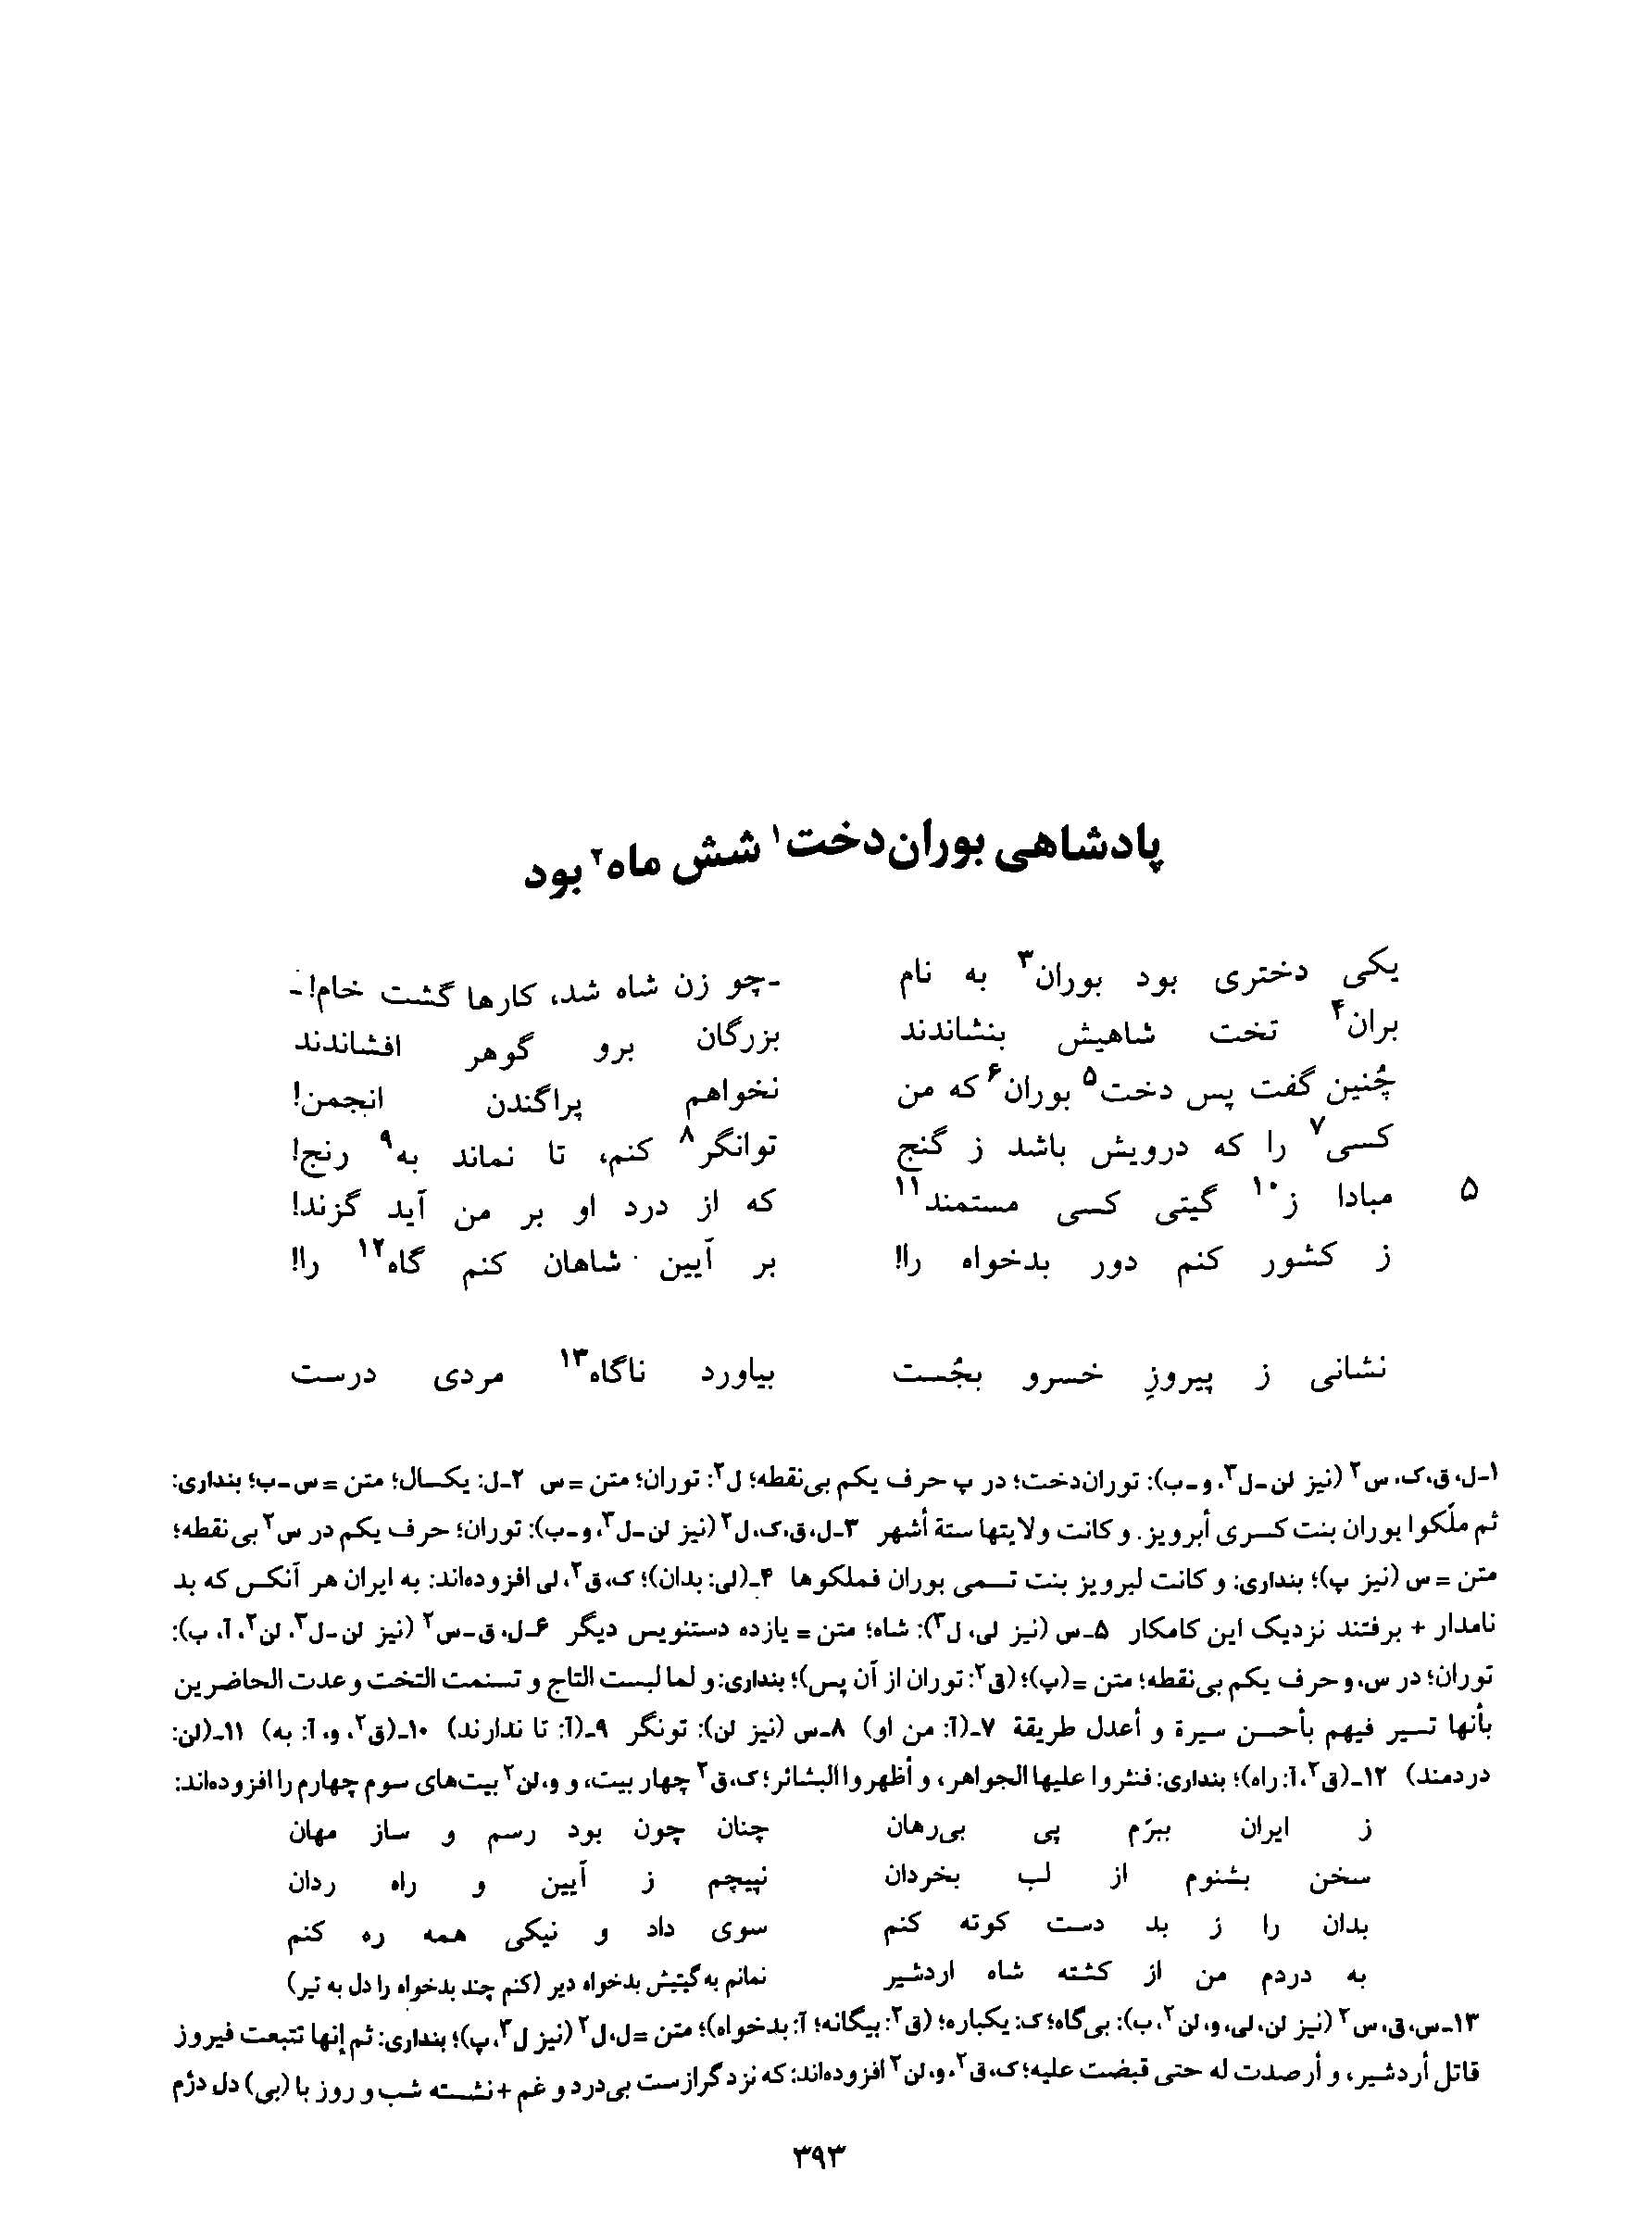 پادشاهی بوران‌دخت۱ شش ماه۲ بود
یکی دختری بود بوران۳ به نام -چو زن شاه شد، کارها گشت خام!-
بران۴ تخت شاهیش بنشاندند بزرگان برو گوهر افشاندند
چُنین گفت پس دخت۵ بوران۶ که من نخواهم پراگندن انجمن!
کسی۷ را که درویش باشد ز گنج توانگر۸ کنم، تا نماند به۹ رنج!
۵ مبادا ز۱۰ گیتی کسی مستمند۱۱ که از درد او بر من آید گزند!
ز کشور کنم دور بدخواه را! بر آیین شاهان کنم گاه۱۲ را!
نشانی ز پیروزِ خسرو بجُست بیاورد ناگاه۱۳ مردی درست
۱-ل، ق، ک، س۲ (نیز لن-ل۳، و-ب): توران‌دخت؛ در پ حرف یکم بی‌نقطه؛ ل۲: توران؛ متن = س ۲-ل: یکسال؛ متن = س-ب؛ بنداری:
ثم ملّکوا بوران بنت کسری أبرویز. و کانت ولایتها ستة أشهر ۳-ل، ق، ک، ل۲ (نیز لن-ل۳، و-ب): توران؛ حرف یکم در س۲ بی‌نقطه؛
متن = س (نیز پ)؛ بنداری: و کانت لبرویز بنت تسمی بوران فملکوها ۴-(لی: بدان)؛ ک، ق۲، لی افزوده‌اند: به ایران هر آنکس که بد
نامدار + برفتند نزدیک این کامکار ۵-س (نیز لی، ل۳): شاه؛ متن = یازده دستنویس دیگر ۶-ل، ق-س۲ (نیز لن-ل۳، لن۲، آ، ب):
توران؛ در س، و حرف یکم بی‌نقطه؛ متن = (پ)؛ (ق۲: توران از آن پس)؛ بنداری: و لما لبست التاج و تسنمت التخت و عدت الحاضرین
بأنها تسیر فیهم بأحسن سیرة و أعدل طریقة ۷-(آ: من او) ۸-س (نیز لن): تونگر ۹-(آ: تا ندارند) ۱۰-(ق۲، و، آ: به) ۱۱-(لن:
دردمند) ۱۲-(ق۲، آ: راه)؛ بنداری: فنثروا علیها الجواهر، و أظهروا البشائر؛ ک، ق۲ چهار بیت، و و، لن۲ بیت‌های سوم چهارم را افزوده‌اند:
ز ایران ببرّم پی بی‌رهان چنان چون بود رسم و ساز مهان
سخن بشنوم از لب بخردان نپیچم ز آیین و راه ردان
بدان را ز بد دست کوته کنم سوی داد و نیکی همه ره کنم
به دردم من از کشته شاه اردشیر نمانم به گیتیش بدخواه دیر (کنم چند بدخواه را دل به تیر)
۱۳-س، ق، س۲ (نیز لن، لی، و، لن۲، ب): بی‌گاه؛ ک: یکباره؛ (ق۲: بیگانه؛ آ: بدخواه)؛ متن = ل، ل۲ (نیز ل۳، پ)؛ بنداری: ثم إنها تتبعت فیروز
قاتل أردشیر، و أرصدت له حتی قبضت علیه؛ ک، ق۲، و، لن۲ افزوده‌اند: که نزد گرازست بی‌درد و غم + نشسته شب و روز با (بی) دل دژم
۳۹۳